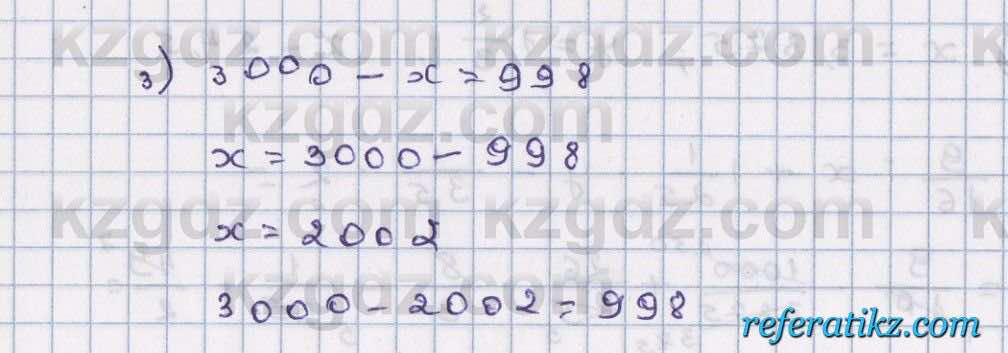 kzgdz.com kzgdz.com kzgdz.com
3) 3000 - x = 998
kzgdz.com
x = 3000 - 998
kzgdz.com kzgdz.com kzgdz.com
x = 2002
kzgdz.com
3000 - 2002 = 998
referatikz.com